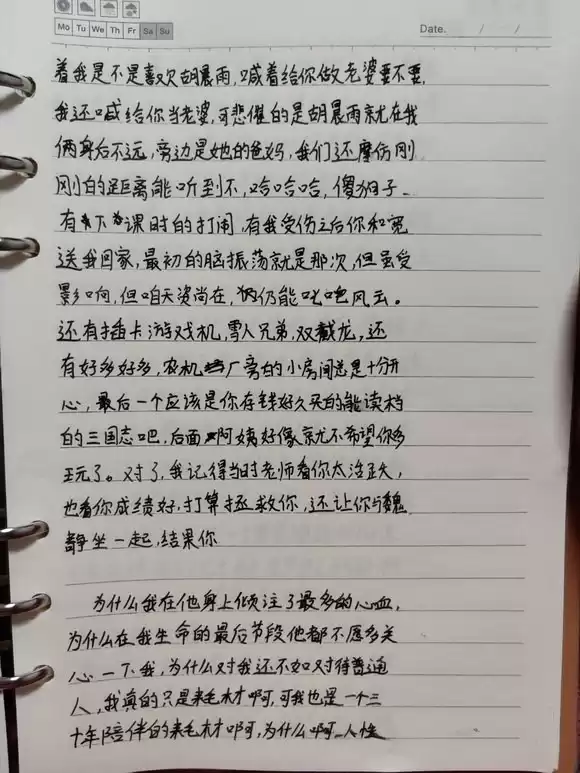 Mo Tu We Th Fr Sa Su
Date. / /
着我是不是喜欢胡晨雨,喊着给你做老婆要不要,
我还喊给你当老婆,可悲催的是胡晨雨就在我
俩身后不远,旁边是她的爸妈,我们还摩仿刚
刚的距离能听到不,哈哈哈,傻狍子.
有下课时的打闹,有我受伤之后你和宽
送我回家,最初的脑振荡就是那次,但虽受
影响,但咱天资尚在,仍能叱咤风云。
还有插卡游戏机,雪人兄弟,双截龙,还
有好多好多,农机厂旁的小房间总是十分开
心,最后一个应该是你存钱好久买的能读档
的三国志吧,后面阿姨好像就不希望你多
玩了。对了,我记得当时老师看你太活跃,
也看你成绩好,打算拯救你,还让你与魏
静坐一起,结果你
为什么我在他身上倾注了最多的心血,
为什么在我生命的最后节段他都不愿多关
心一下我,为什么对我还不如对待普通
人,我真的只是耗材啊,可我也是一个三
十年陪伴的耗材啊,为什么啊,人性